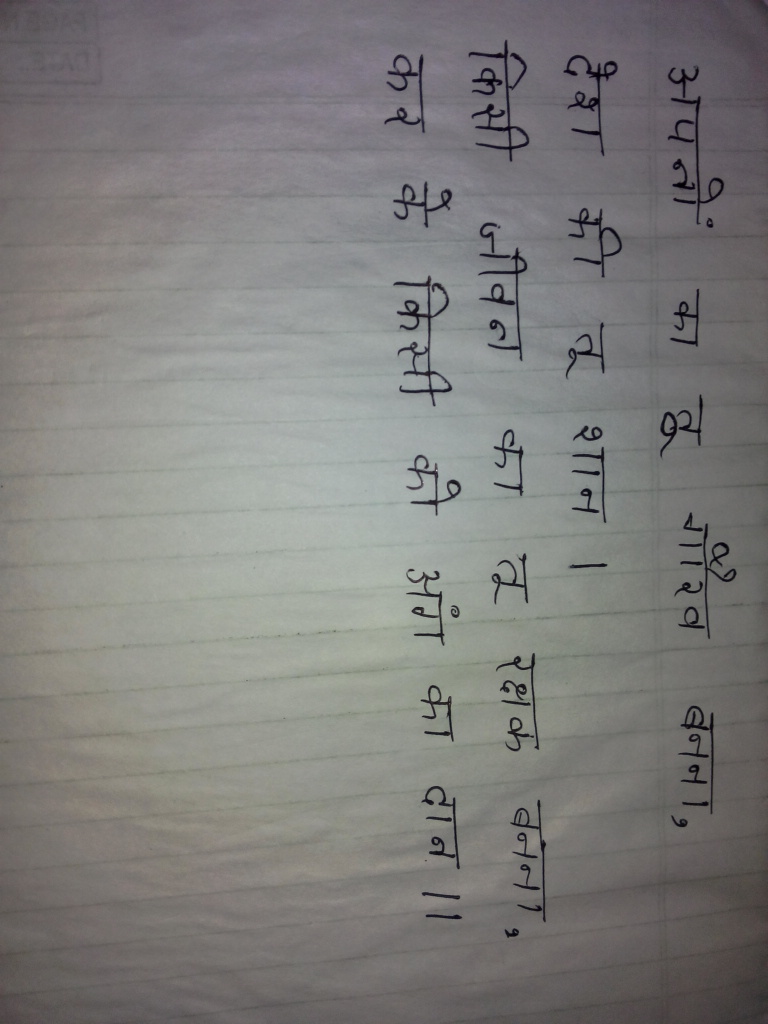 अपनों का तू गौरव बनना,
देश की तू शान ।
किसी जीवन का तू रक्षक बनना,
कर के किसी को अंग का दान ॥